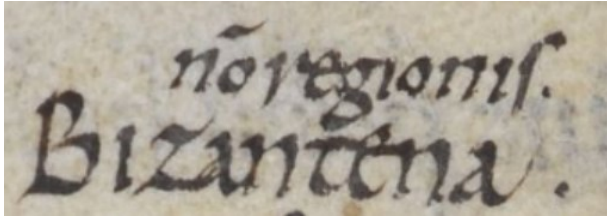 nō regionis.
Bizantena.